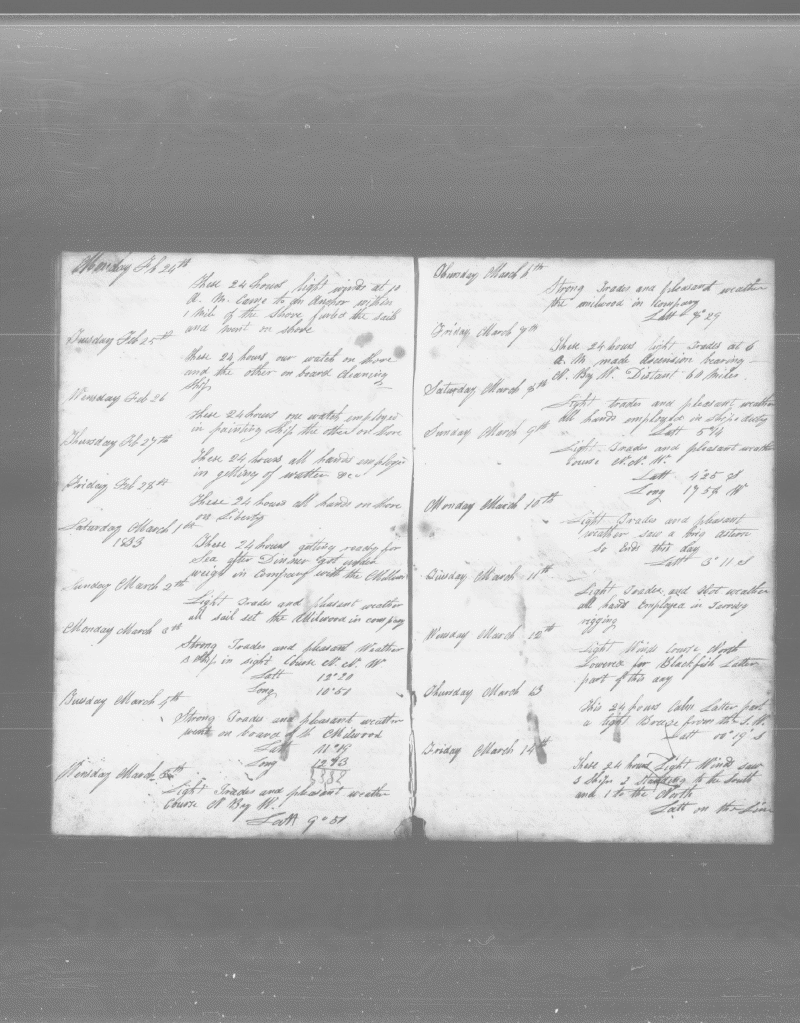 Monday Feb 24th
These 24 hours light winds at 10
A. M. Came to an Anchor within
1 mile of the Shore furled the sails
and went on shore
Tuesday Feb 25th
these 24 hours our watch on Shore
and the other on board cleancing
ship
Wensday Feb 26
these 24 hours one watch employed
in painting ship the other on Shore
Thursday Feb 27th
These 24 hours all hands employed
in getting of water &c
Friday Feb 28th
These 24 hours all hands on Shore
on Liberty
Saturday March 1st
1833
These 24 hours getting ready for
Sea after Dinner got under
weigh in Company with the
Sunday March 2th
Light Trades and pleasant weather
all sail set the Milwood in company
Monday March 3th
Strong Trades and pleasant Weather
a ship in sight Course N. N. W
Latt 12°20
Long 10°51
Tuesday March 4th
Strong Trades and pleasant weather
went on board of the Milwood
Latt 11°19
Long
Wensday March 5th
Light Trades and pleasant weather
Course N By W.
Latt 9°51
Thursday March 6th
Strong Trades and pleasant weather
the milwood in Company
Latt 8°29
Friday March 7th
These 24 hours light Trades at 6
A. M. made Asension bearing
N. By W. Distant 60 Miles
Saturday March 8th
Light trades and pleasant weather
all hands employed in ships duty
Latt
Sunday March 9th
Light Trades and pleasant weather
Course N. N. W.
Latt 4°25 S
Long W
Monday March 10th
Light Trades and pleasant
weather saw a brig astern
so Ends this day
Latt 3°11 S
Tuesday March 11th
Light Trades and Hot weather
all hands Employed in
rigging
Wensday March 12th
Light Winds Course North
Lowered for Blackfish Latter
part of this day
Thursday March 13
This 24 hours Calm Latter part
a light Breeze from the S. W.
Latt 00°19' S
Friday March 14th
These 24 hours Light Winds saw
3 Ships 2 to the South
and 1 to the North
Latt on the Line